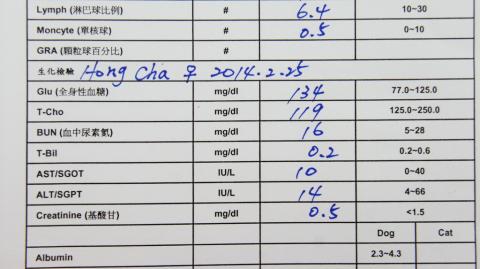 Lymph (淋巴球比例) # 6.4 10~30
Moncyte (單核球) # 0.5 0~10
GRA (顆粒球百分比) #
生化檢驗 Hong Cha ♀ 2014.2.25
Glu (全身性血糖) mg/dl 134 77.0~125.0
T-Cho mg/dl 119 125.0~250.0
BUN (血中尿素氮) mg/dl 16 5~28
T-Bil mg/dl 0.2 0.2~0.6
AST/SGOT IU/L 10 0~40
ALT/SGPT IU/L 14 4~66
Creatinine (基酸甘) mg/dl 0.5 <1.5
Dog Cat
Albumin 2.3~4.3